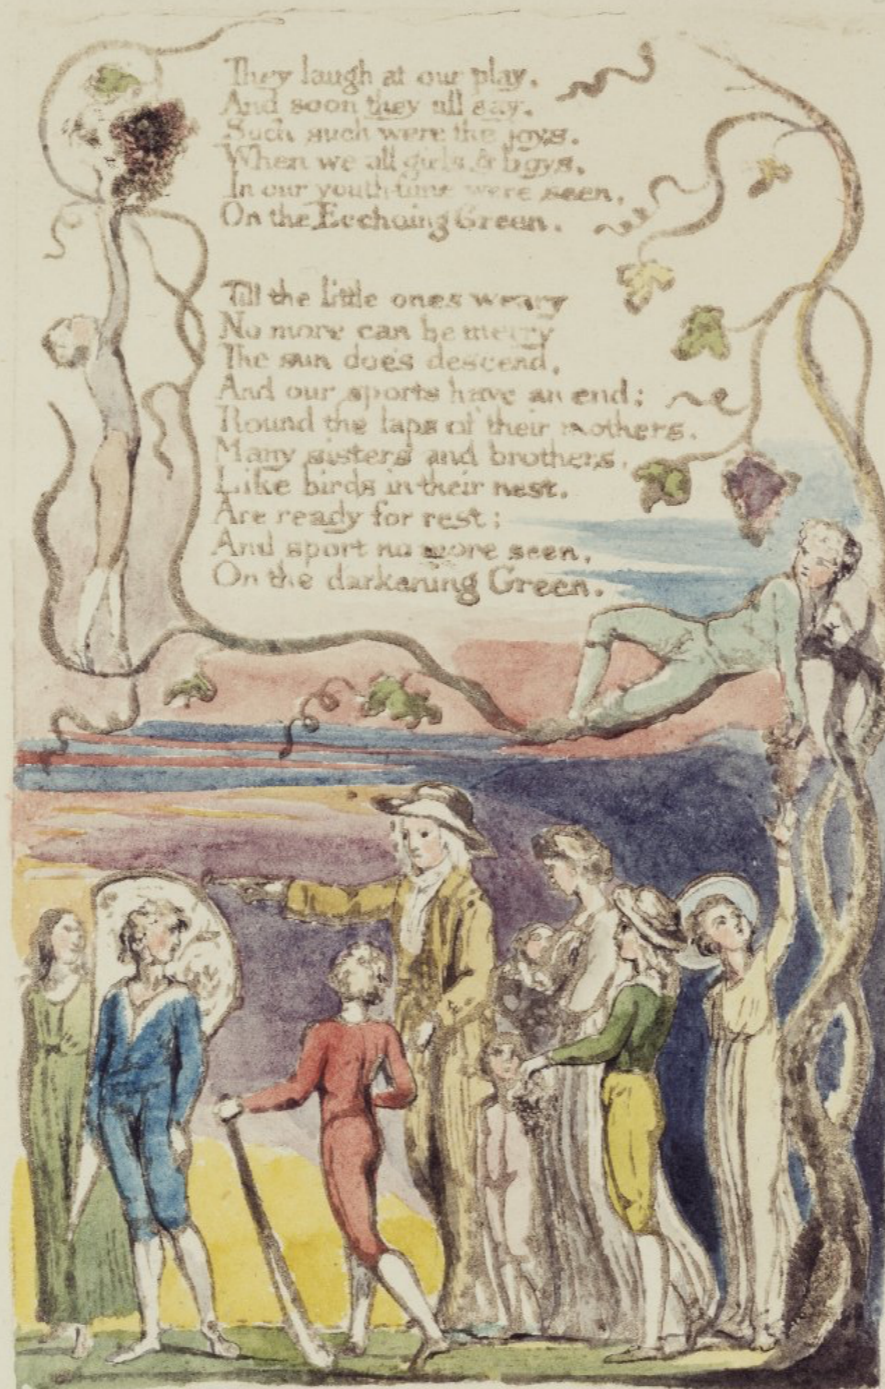 They laugh at our play,
And soon they all say.
Such such were the joys.
When we all girls & boys,
In our youth-time were seen,
On the Ecchoing Green.
Till the little ones weary
No more can be merry
The sun does descend,
And our sports have an end:
Round the laps of their mothers,
Many sisters and brothers,
Like birds in their nest,
Are ready for rest;
And sport no more seen,
On the darkening Green.